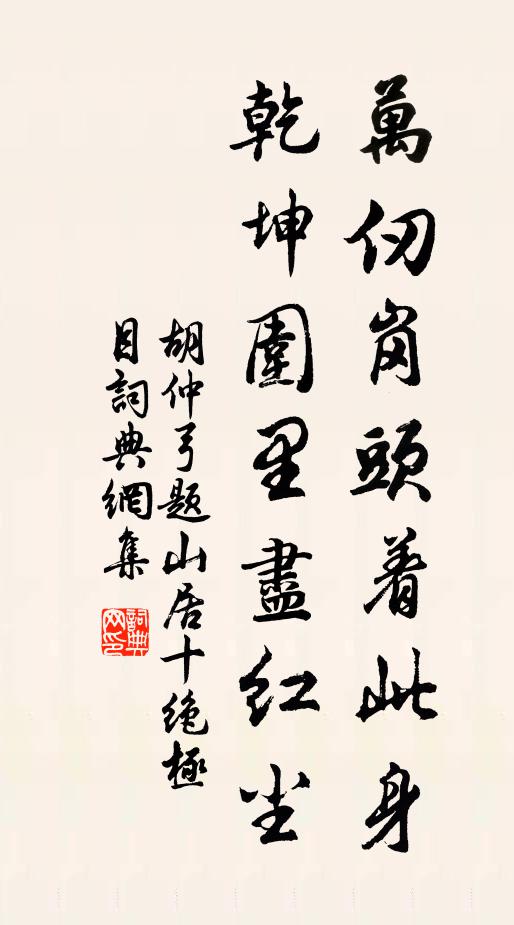 萬仞岗頭着此身
乾坤圍里盡红尘
胡仲弓题山居十绝極
目詞典網集
詞典
网印